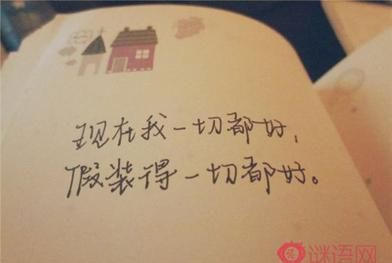 现在我一切都好，
假装得一切都好。
谜语网